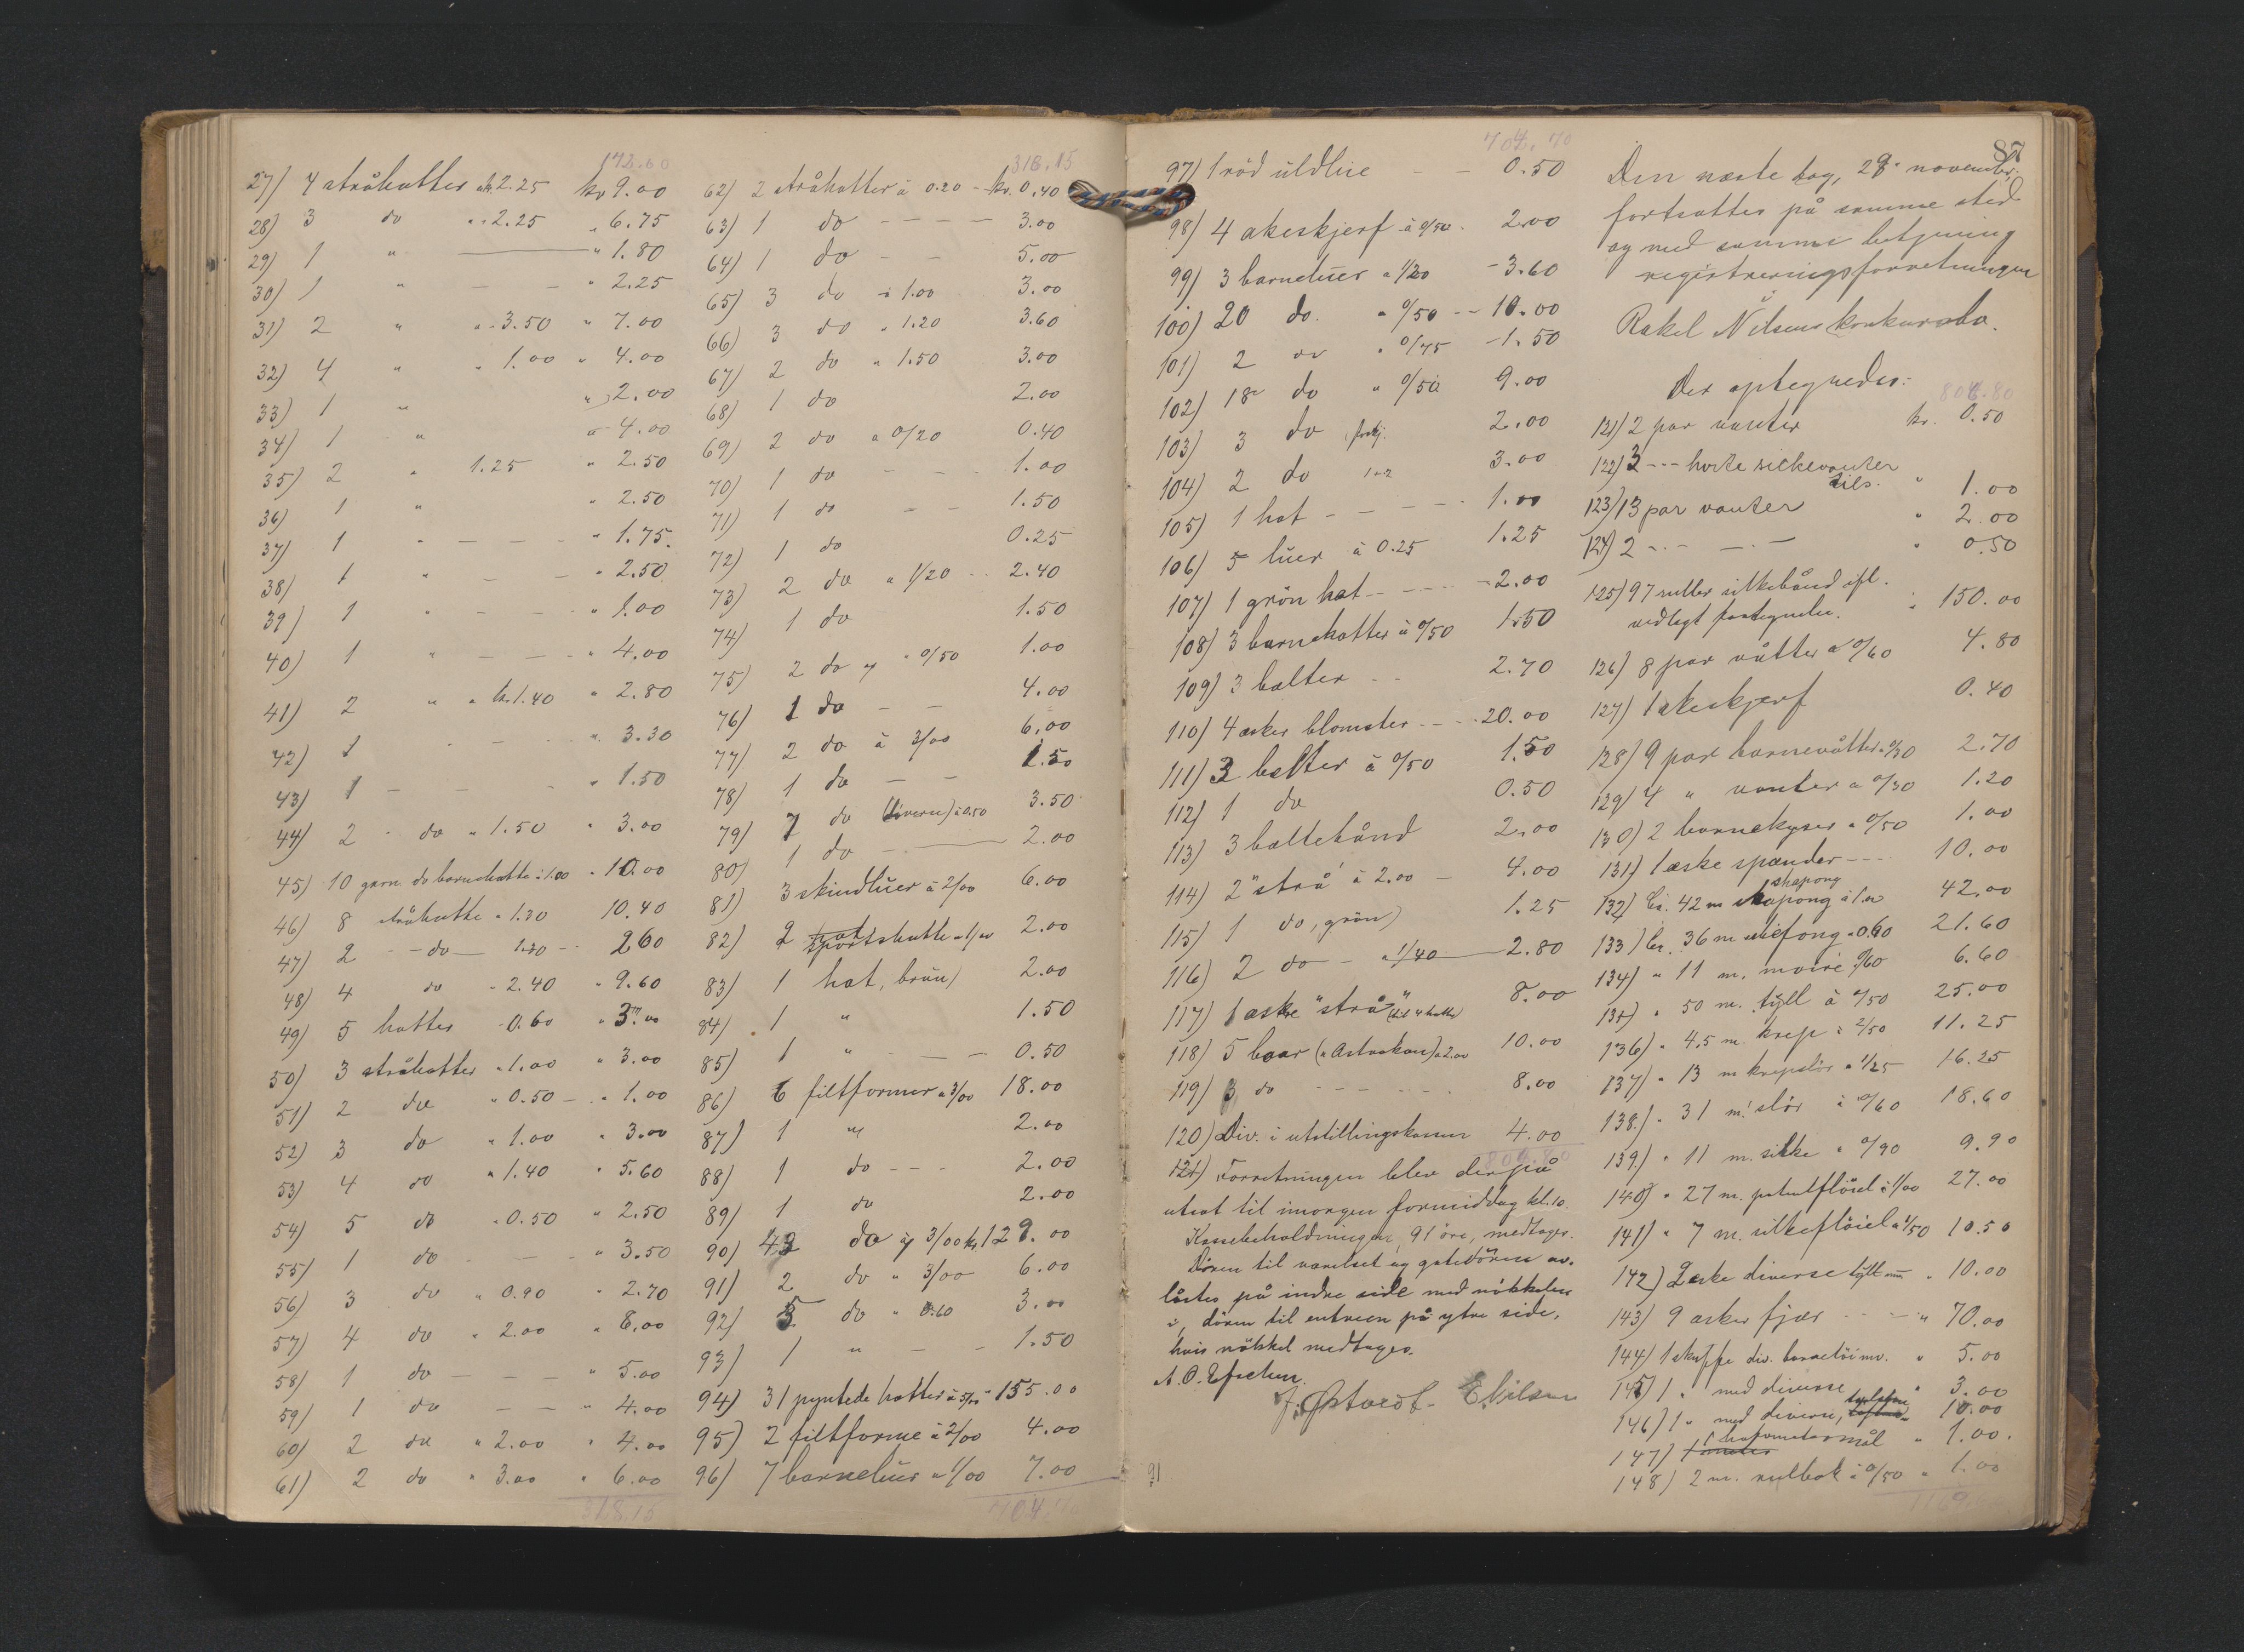 172.60
27) 4 stråhatter à kr 2.25 kr 9.00
28) 3 do " 2.25 " 6.75
29) 1 " — " 1.80
30) 1 " — — " 2.25
31) 2 " " 3.50 " 7.00
32) 4 " " 1.00 " 4.00
33) 1 " " 2.00
34) 1 " " 4.00
35) 2 " 1.25 " 2.50
36) 1 " " 2.50
37) 1 " — — — " 1.75.
38) 1 " — — " 2.50
39) 1 " - - - " 1.00
40) 1 " — — " 4.00
41) 2 " " kr. 1.40 " 2.80
42) 1 - - - " 3.30
43) 1 - - - " 1.50
44) 2 " do " 1.50 " 3.00
45) 10 garn. do barnehatte à 1.00 " 10.00
46) 8 stråhatte " 1.30 10.40
47) 2 - do — 1.30 - 2.60
48) 4 do " 2.40 " 9.60
49) 5 hatter 0.60 " 3.00
50) 3 stråhatter " 1.00 " 3.00
51) 2 do " 0.50 — " 1.00
52) 3 do " 1.00 " 3.00
53) 4 do " 1.40 " 5.60
54) 5 do " 0.50 " 2.50
55) 1 do - — " 3.50
56) 3 do " 0.90 " 2.70
57) 4 do " 2.00 " 8.00
58) 1 do — — — " 5.00
59) 1 do — — " 4.00
60) 2 do " 2.00 " 4.00
61) 2 do " 3.00 " 6.00
318.15
318.15
62) 2 stråhatter à 0.20 - kr. 0.40
63) 1 do — — — — 3.00
64) 1 do — — 5.00
65) 3 do à 1.00 3.00
66) 3 do " 1.20 3.60
67) 2 do " 1.50 3.00
68) 1 do 2.00
69) 2 do a 0/20 0.40
70) 1 do - - - 1.00
71) 1 do — — 1.50
72) 1 do 0.25
73) 2 do a 1/20 - - 2.40
74) 1 do 1.50
75) 2 do " 0/50 1.00
76) 1 do — — 4.00
77) 2 do à 3/00 6.00
78) 1 do — — 1.50
79) 7 do (diverse) à 0.50 3.50
80) 1 do — 2.00
81) 3 skindluer à 2/00 6.00
82) 2 sportshatte a 1/00 2.00
83) 1 hat, brun) 2.00
84) 1 " 1.50
85) 1 " - — — 0.50
86) 6 filtformer a 3/00 18.00
87) 1 " 2.00
88) 1 do - - - 2.00
89) 1 do 2.00
90) 43 do à 3/00 kr. 129.00
91) 2 do " 3/00 6.00
92) 5 do " 0.60 3.00
93) 1 " — — 1.50
94) 31 pyntede hatter à 5/00 - 155.00
95) 2 filtforme à 2/00 4.00
96) 7 barneluer a 1/00 7.00
704.70
704.70
97) 1 rød uldlue - - 0.50
98) 4 akeskjerf à 0/50 - 2.00
99) 3 barneluer a 1/20 - 3.60
100) 20 do. " 0/50 - - 10.00
101) 2 do " 0/75 - 1.50
102) 18 do " 0/50 9.00
103) 3 do forskj. 2.00
104) 2 do 3.00
105) 1 hat - — — - 1.00
106) 5 luer à 0.25 1.25
107) 1 grøn hat - - - - 2.00
108) 3 barnehatter à 0/50 1.50
109) 3 balter - - 2.70
110) 4 æsker blomster - - - 20.00
111) 3 belter à 0/50 1.50
112) 1 do 0.50
113) 3 beltebånd 2.00
114) 2 "strå" à 2.00 — 4.00
115) 1 do, grøn) 1.25
116) 2 do — a 1/40 — 2.80
117) 1 æske "strå" (til 4 hatte) 8.00
118) 5 boaer ("Astrakan) a 2.00 10.00
119) 3 do - - - - 8.00
120) Div. i utstillingskassen 4.00
804.80
121) Forretningen blev derpå
utsat til imorgen formiddag kl. 10.
Kassebeholdningen, 91 øre, medtages.
Døren til værelset og gatedøren av-
låstes på indre side med nøkkelen
i, døren til entreen på ytre side,
hvis nøkkel medtages.
J. Østvedt. E Nilsen
87
Den næste dag, 28. november,
fortsattes på samme sted
og med samme betjening
registreringsforretningen
i
Rakel Nilsens konkursbo.
Der optegnedes:
804.80
121) 2 par vanter kr. 0.50
122) 3 - - - hvite silkevanter
tils. " 1.00
123) 13 par vanter " 2.00
124) 2 - . - — . — " 0.50
125) 97 ruller silkebånd ifl.
vedlagt fortegnelse. " 150.00
126) 8 par våtter a 0/60 4.80
127) 1 akeskjerf 0.40
128) 9 par barnevåtter a 0/30 2.70
129) 4 " vanter a 0/30 1.20
130) 2 barnekyser a 0/50 1.00
131) 1 æske spænder - - - 10.00
shapong
132) Ca. 42 m shapong à 1.00 42.00
133) Ca. 36 m sliefong a 0.60 21.60
134) " 11 m. moiré 0/60 6.60
135) " 50 m. tyll à 0/50 25.00
136) " 4,5 m. krep à 2/50 11.25
137) " 13 m krepslør a 1/25 16.25
138) " 31 m. slør à 0/60 18.60
139) " 11 m. silke " 0/90 9.90
140) " 27 m. patentfløiel à 1/00 27.00
141) " 7 m. silkefløiel a 1/50 10.50
142) 2 æske diverse tyll mm " 10.00
143) 9 æsker fjær - - " 70.00
144) 1 skuffe div. barnetøi mv. " 5.00
145) 1 " med diverse " 3.00
146) 1 " med diverse, " 10.00
147) 1 mål " 1.00.
148) 2 m. à 0/50 " 1.00